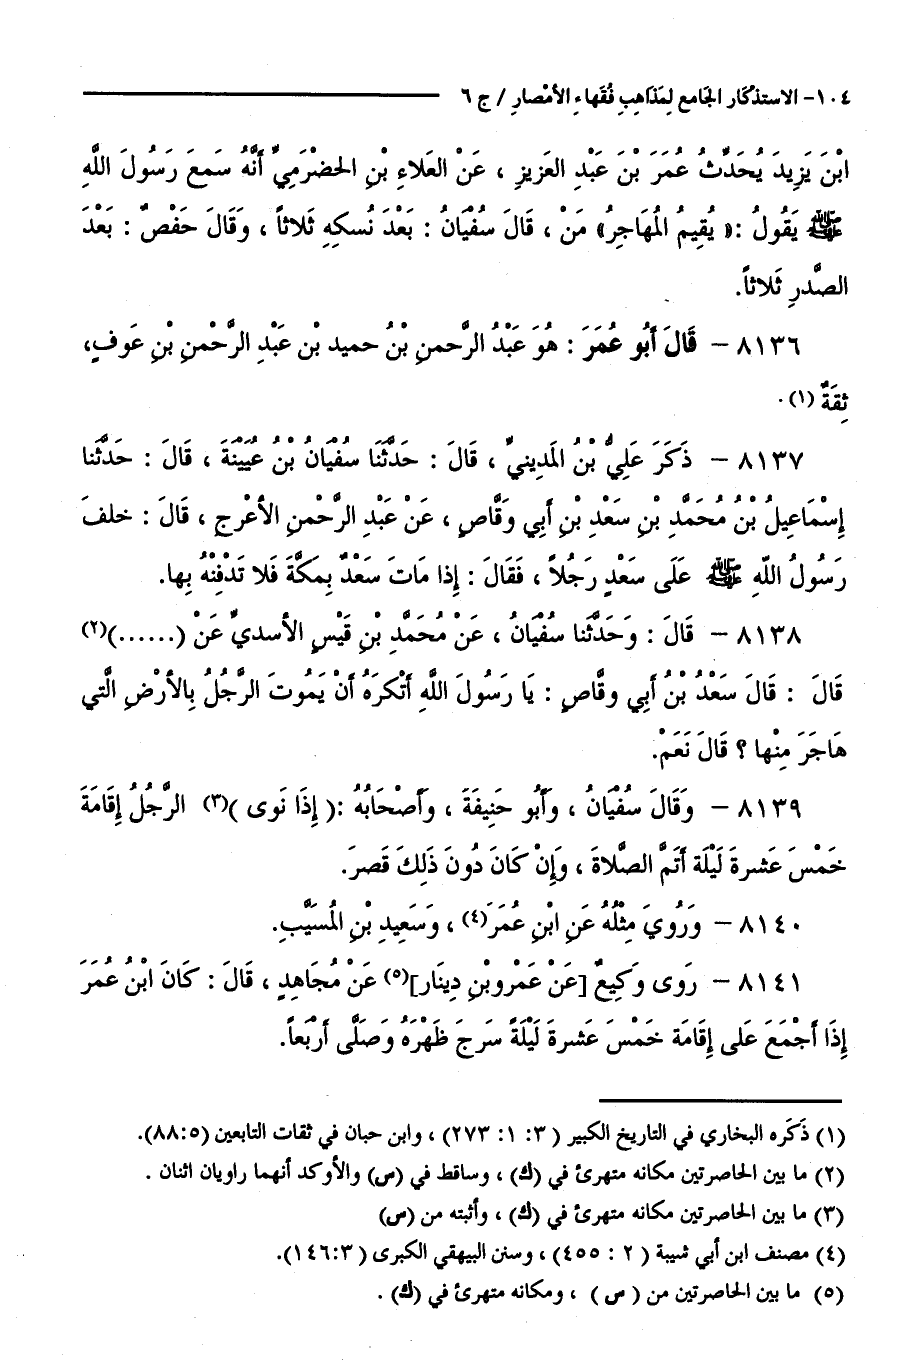 ١٠٤- الاستذكار الجامع لِمَذاهِبِ فُقَهاء الأمْصارِ / ج ٦
ابْنَ يَزِيدَ يُحَدِّثُ عُمَرَ بْنَ عَبْدِ العَزِيزِ ، عَنْ العَلاءِ بْنِ الحَضْرَمِيِّ أَنَّهُ سَمعَ رَسُولَ اللَّهِ
ﷺ يَقُولُ :« يُقِيمُ الْمُهَاجِرُ» مَنْ ، قَالَ سُفْيَانُ : بَعْدَ نُسكِهِ ثَلاثاً ، وَقَالَ حَفْصٌ : بَعْدَ
الصَّدرِ ثَلاثاً.
٨١٣٦ - قَالَ أَبُو عُمَرَ : هُوَ عَبْدُ الرَّحمنِ بْنُ حميد بْنِ عَبْدِ الرَّحْمنِ بْنِ عَوفٍ،
ثِقَةٌ (١) .
٨١٣٧ - ذَكَرَ عَلِيُّ بْنُ المَدِينِيِّ ، قَالَ : حَدَّثَنَا سُفْيَانُ بْنُ عُيَيْنَةَ ، قَالَ : حَدَّثَنا
إِسْمَاعِيلُ بْنُ مُحَمَّدِ بْنِ سَعْدِ بْنِ أَبِي وَقَّاصٍ ، عَنْ عَبْدِ الرَّحْمنِ الأعْرجِ ، قَالَ : خلفَ
رَسُولُ اللَّهِ ﷺ عَلَى سَعْدٍ رَجُلاً ، فَقَالَ : إِذا مَاتَ سَعْدٌ بِمَكَّةَ فَلا تَدْفِنْهُ بِها.
٨١٣٨ - قَالَ : وَحَدَّثَنا سُفْيَانُ ، عَنْ مُحَمَّدِ بْنِ قَيْسٍ الأسديِّ عَنْ (......)(٢)
قَالَ : قَالَ سَعْدُ بْنُ أَبِي وقَّاصٍ : يَا رَسُولَ اللَّهِ أَتَكْرَهُ أَنْ يَمُوتَ الرَّجُلُ بِالأرْضِ الَّتِي
هَاجَرَ مِنْها ؟ قَالَ نَعَمْ.
٨١٣٩ - وَقَالَ سُفْيَانُ ، وَأَبُو حَنِيفَةَ ، وَأَصْحَابُهُ :( إِذَا نَوى )(٣) الرَّجُلُ إِقَامَةَ
خَمْسَ عَشرةَ لَيْلَة أَتَمَّ الصَّلاةَ ، وَإِنْ كَانَ دُونَ ذَلِكَ قَصرَ.
٨١٤٠ - وَرُوِيَ مِثْلُهُ عَنِ ابْنِ عُمَرَ(٤) ، وَسَعِيدِ بْنِ المُسَيَّبِ.
٨١٤١ - رَوى وَكِيعٌ [عَنْ عَمْرِو بْنِ دِينَار](٥) عَنْ مُجَاهِدٍ ، قَالَ : كَانَ ابْنُ عُمَرَ
إِذَا أَجْمَعَ عَلى إِقَامَة خَمْسَ عَشرةَ لَيْلَةً سَرجَ ظَهْرَهُ وَصَلَّى أَرْبَعاً.
(١) ذَكَره البخاري في التاريخ الكبير ( ٣: ١: ٢٧٣) ، وابن حبان في ثقات التابعين (٨٨:٥).
(٢) ما بين الحاصرتين مكانه متهرئ في (ك) ، وساقط في (س) والأوكد أنهما راويان اثنان .
(٣) ما بين الحاصرتين مكانه متهرئ في (ك) ، وأثبته من (س)
(٤) مصنف ابن أبي شيبة ( ٢ : ٤٥٥) ، وسنن البيهقي الكبرى ( ١٤٦:٣).
(٥) ما بين الحاصرتين من ( س ) ، ومكانه متهرئ في (ك) .